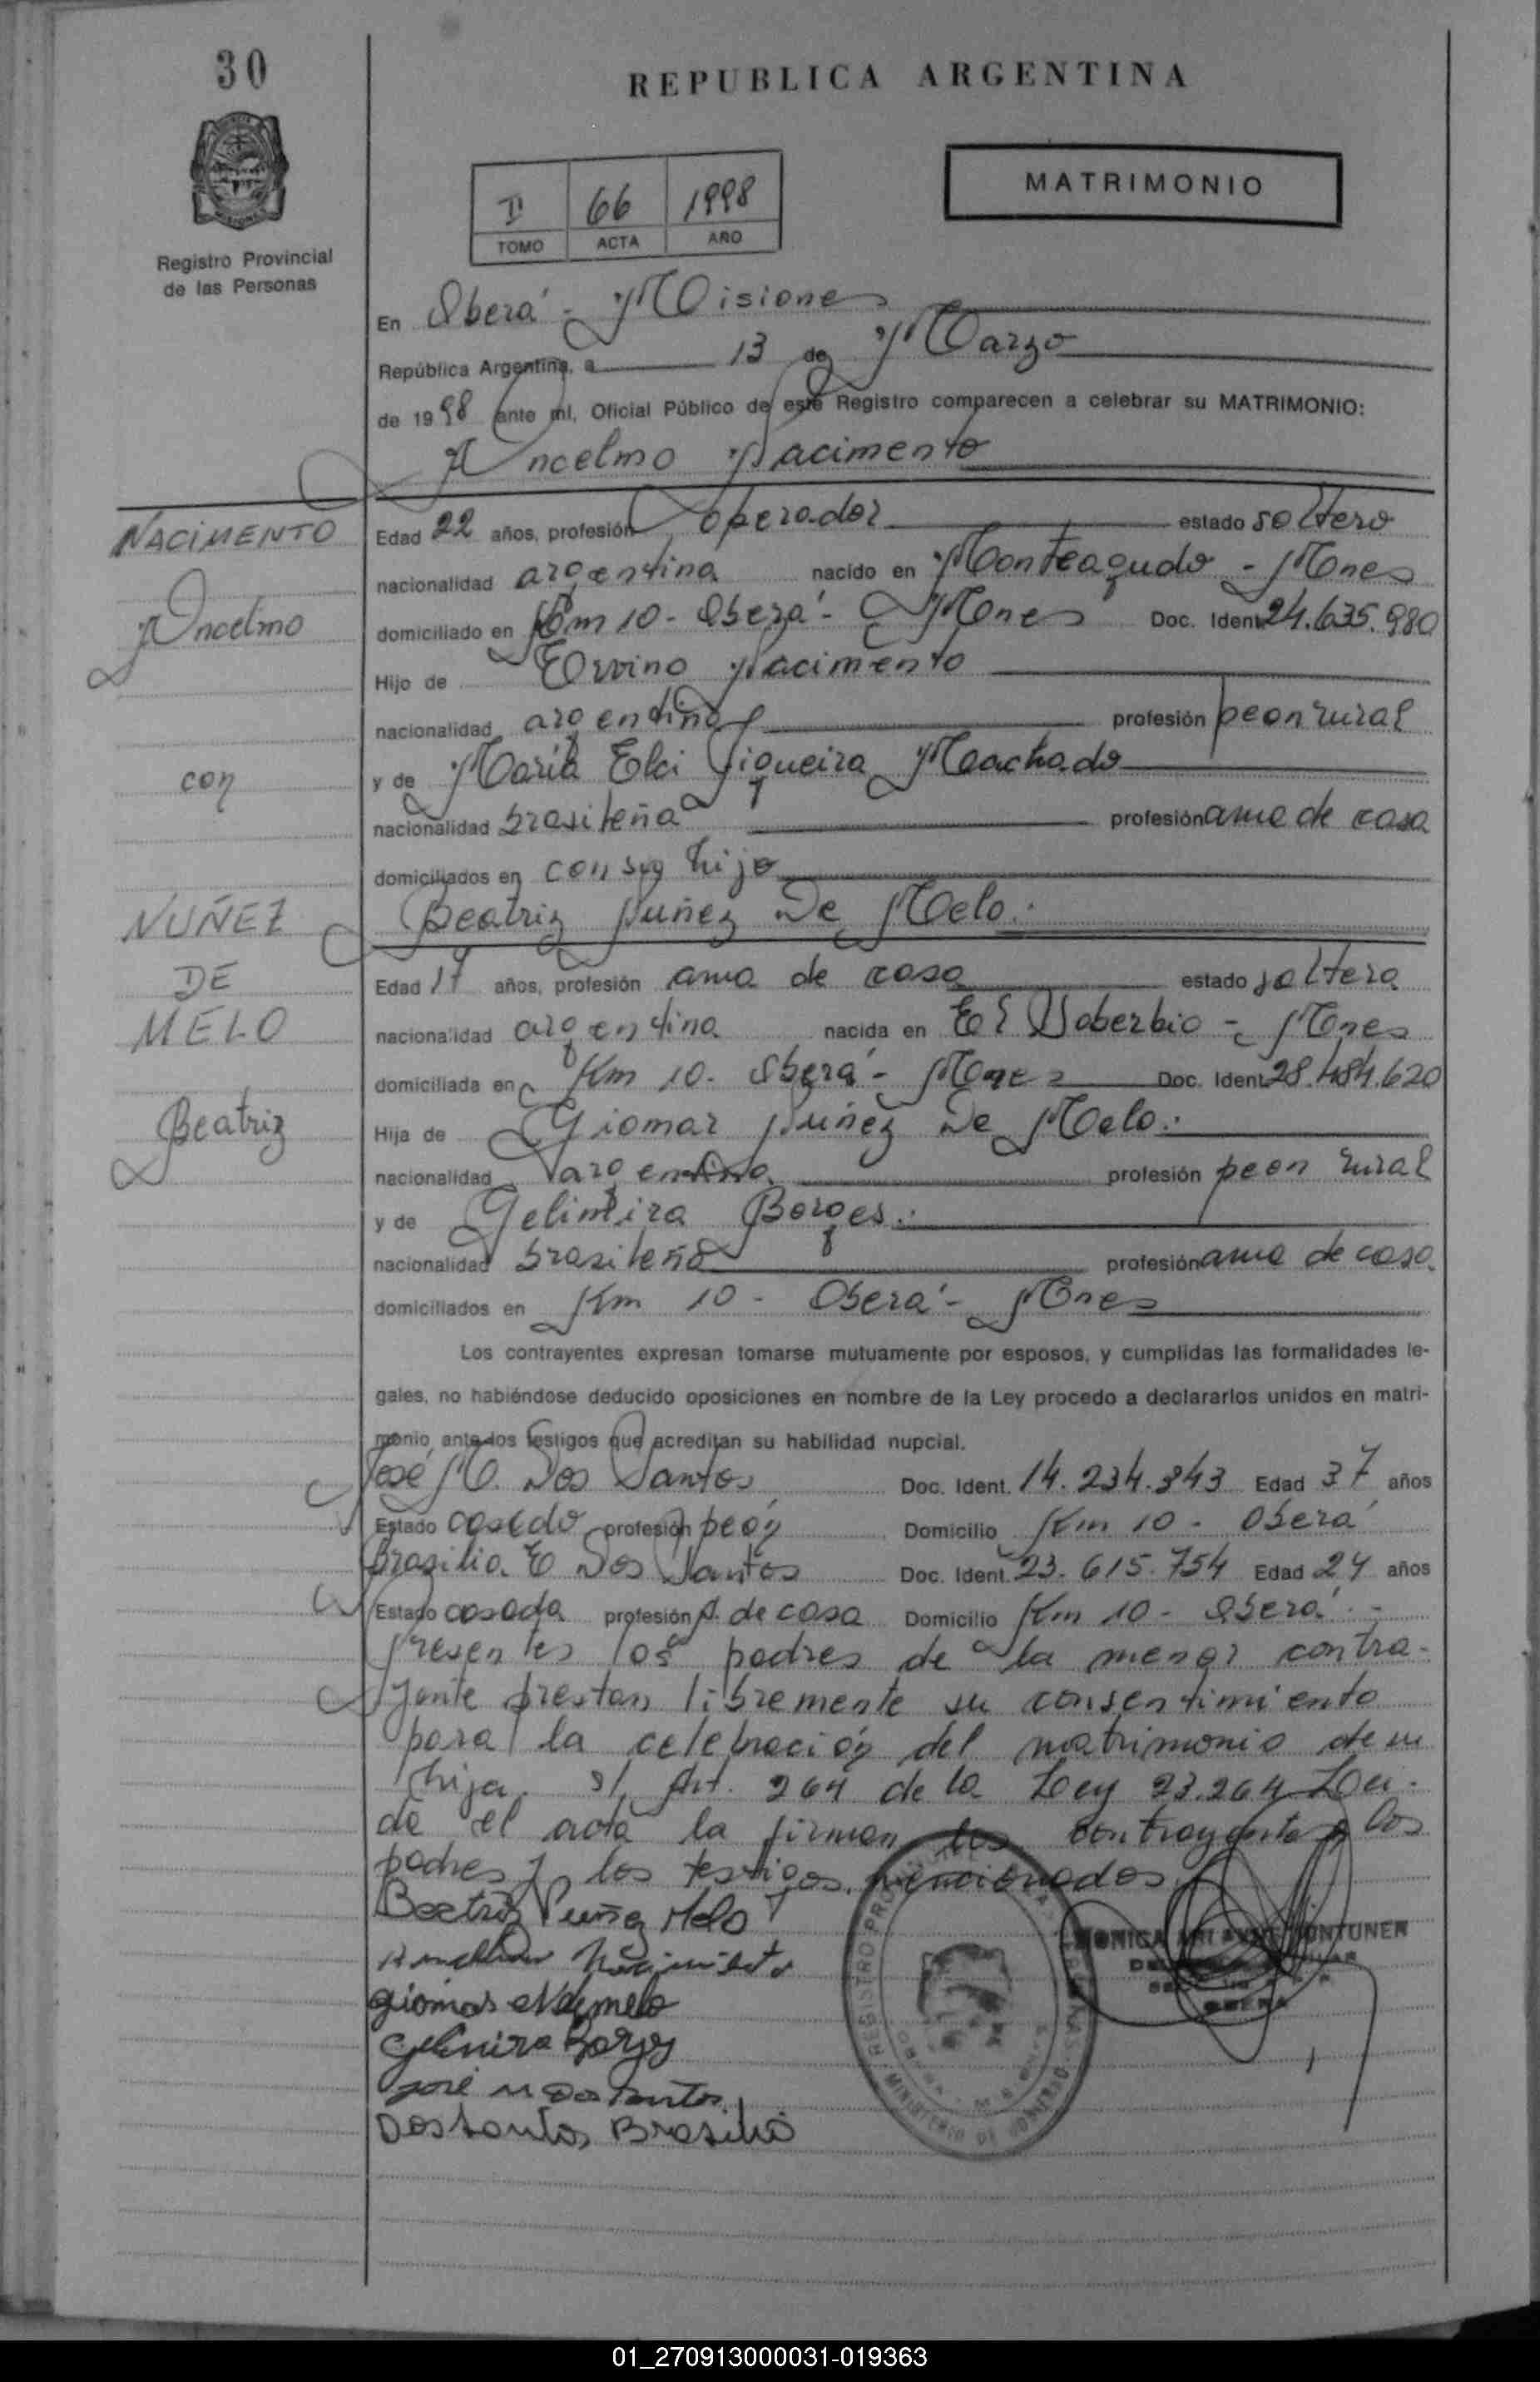 30
REPUBLICA ARGENTINA
MATRIMONIO
II 66 1998
TOMO ACTA AÑO
Registro Provincial
de las Personas
En Oberá - Misiones
República Argentina, a 13 de Marzo
de 1998 ante mí, Oficial Público de este Registro comparecen a celebrar su MATRIMONIO:
Ancelmo Nacimento
NACIMENTO
Ancelmo
con
NUÑEZ
DE
MELO
Beatriz
Edad 22 años, profesión operador estado soltero
nacionalidad argentina nacido en Monteagudo - Mnes
domiciliado en Km 10 - Oberá - Mnes Doc. Ident. 24.635.980
Hijo de Ervino Nacimento
nacionalidad argentino profesión peon rural
y de María Elci Siqueira Machado
nacionalidad brasileña profesión ama de casa
domiciliados en con su hijo
Beatriz Nuñez De Melo.
Edad 17 años, profesión ama de casa estado soltera
nacionalidad argentina nacida en El Soberbio - Mnes
domiciliada en Km 10 - Oberá - Mnes Doc. Ident. 28.484.620
Hija de Giomar Nuñez De Melo.
nacionalidad argentino profesión peon rural
y de Gelimira Borges.
nacionalidad brasileña profesión ama de casa
domiciliados en Km 10 - Oberá - Mnes
Los contrayentes expresan tomarse mutuamente por esposos, y cumplidas las formalidades le-
gales, no habiéndose deducido oposiciones en nombre de la Ley procedo a declararlos unidos en matri-
monio, ante los testigos que acreditan su habilidad nupcial.
José M. Dos Santos Doc. Ident. 14.234.343 Edad 37 años
Estado casado profesión peón Domicilio Km 10 - Oberá
Brasilia E Dos Santos Doc. Ident. 23.615.754 Edad 24 años
Estado casada profesión A. de casa Domicilio Km 10 - Oberá -
Presentes los padres de la menor contra-
yente prestan libremente su consentimiento
para la celebración del matrimonio de su
hija s/ Art. 264 de la Ley 23.264 Leí-
da el acta la firman los contrayentes los
padres y los testigos mencionados
Beatriz Nuñez Melo
Nacimiento
giomar N de melo
Gelimira Borges
José M Dos Santos
Dos Santos Brasilia
REGISTRO PROVINCIAL
MINISTERIO DE GOBIERNO
MONICA
OBERA
01_270913000031-019363